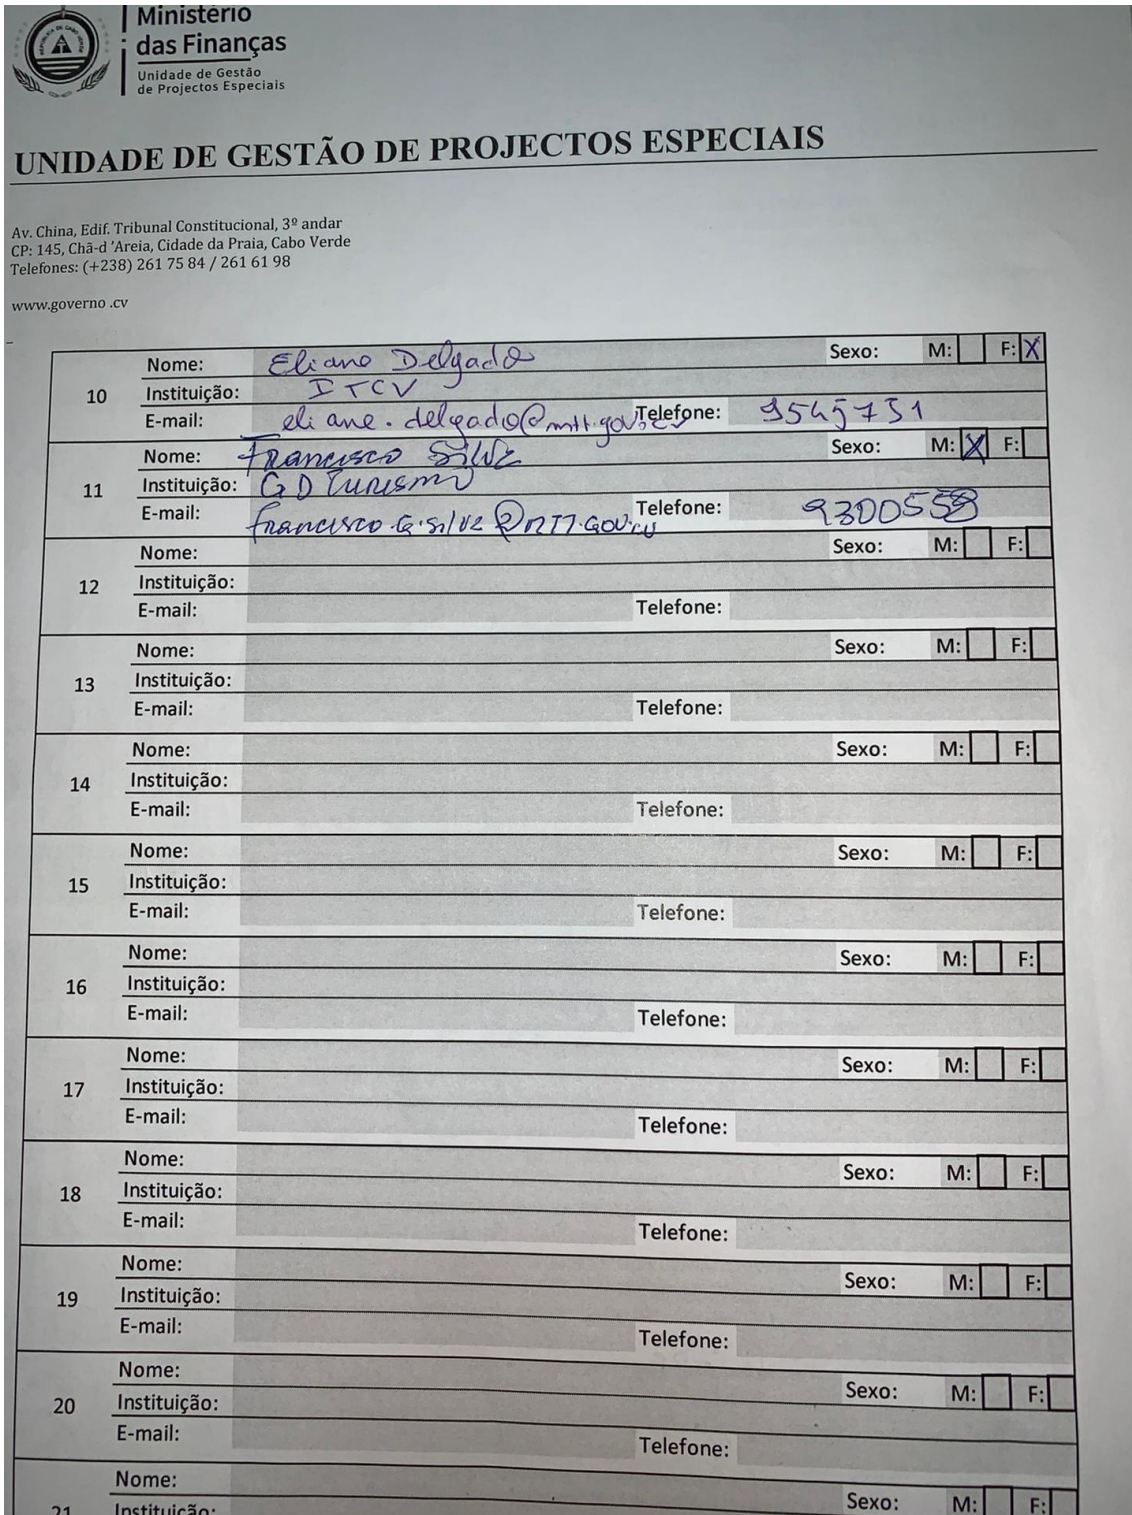 Ministério
das Finanças
Unidade de Gestão
de Projectos Especiais
UNIDADE DE GESTÃO DE PROJECTOS ESPECIAIS
Av. China, Edif. Tribunal Constitucional, 3º andar
CP: 145, Chã-d 'Areia, Cidade da Praia, Cabo Verde
Telefones: (+238) 261 75 84 / 261 61 98
www.governo .cv
10
Nome: Eliane Delgado Sexo: M: F: X
Instituição: ITCV
E-mail: eliane.delgado@mtt.gov.cv Telefone: 9545731
11
Nome: Francisco Silva Sexo: M: X F:
Instituição: GD Turismo
E-mail: francisco.G.silva@MTT.GOV.cv Telefone: 9300558
12
Nome: Sexo: M: F:
Instituição:
E-mail: Telefone:
13
Nome: Sexo: M: F:
Instituição:
E-mail: Telefone:
14
Nome: Sexo: M: F:
Instituição:
E-mail: Telefone:
15
Nome: Sexo: M: F:
Instituição:
E-mail: Telefone:
16
Nome: Sexo: M: F:
Instituição:
E-mail: Telefone:
17
Nome: Sexo: M: F:
Instituição:
E-mail: Telefone:
18
Nome: Sexo: M: F:
Instituição:
E-mail: Telefone:
19
Nome: Sexo: M: F:
Instituição:
E-mail: Telefone:
20
Nome: Sexo: M: F:
Instituição:
E-mail: Telefone:
21
Nome: Sexo: M: F:
Instituição: